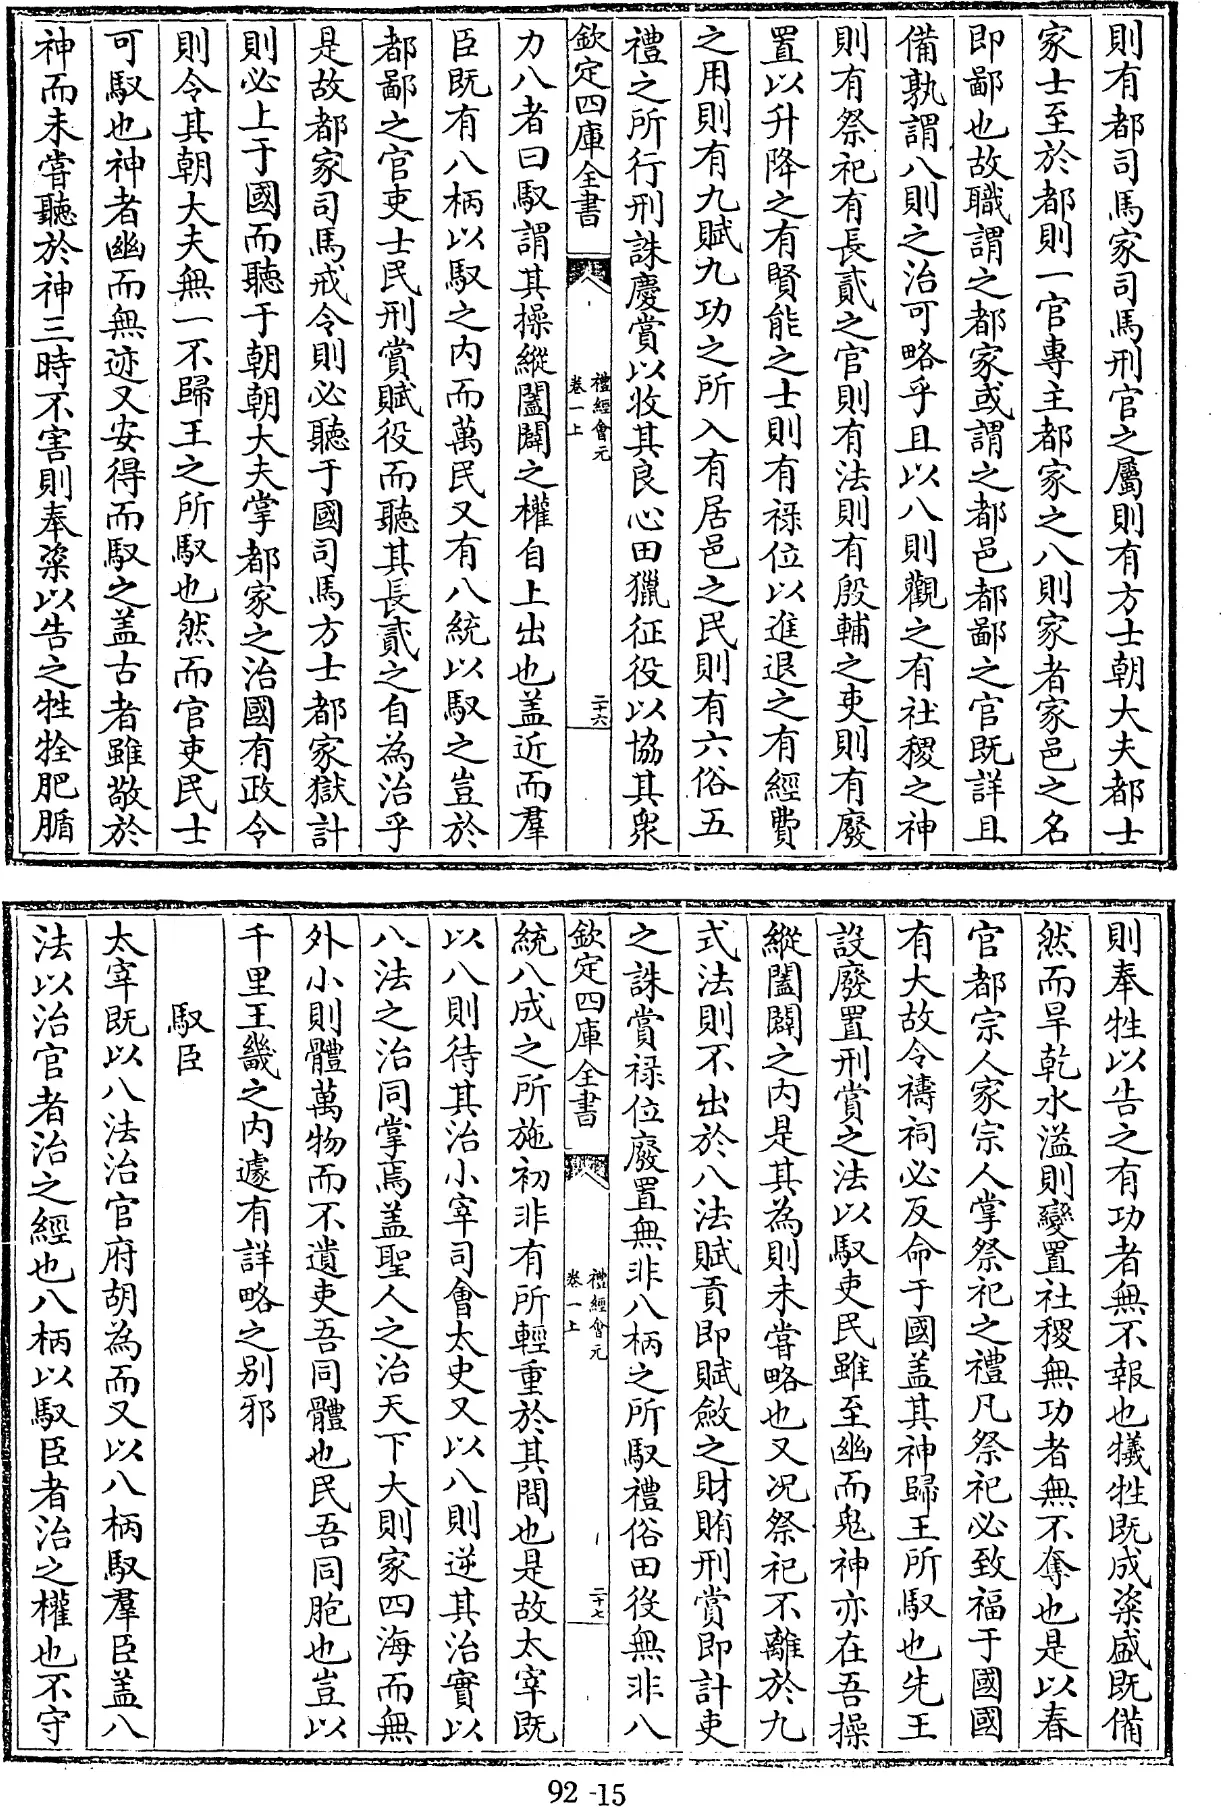 則有都司馬家司馬刑官之屬則有方士朝大夫都士
家士至於都則一官專主都家之八則家者家邑之名
即鄙也故職謂之都家或謂之都邑都鄙之官既詳且
備孰謂八則之治可略乎且以八則觀之有社稷之神
則有祭祀有長貳之官則有法則有殷輔之吏則有廢
置以升降之有賢能之士則有祿位以進退之有經費
之用則有九賦九功之所入有居邑之民則有六俗五
禮之所行刑誅慶賞以收其良心田獵征役以協其衆
欽定四庫全書
禮經會元
卷一上
二十六
力八者曰馭謂其操縱闔闢之權自上出也盖近而羣
臣既有八柄以馭之内而萬民又有八統以馭之豈於
都鄙之官吏士民刑賞賦役而聽其長貳之自為治乎
是故都家司馬戒令則必聽于國司馬方士都家獄計
則必上于國而聽于朝朝大夫掌都家之治國有政令
則令其朝大夫無一不歸王之所馭也然而官吏民士
可馭也神者幽而無迹又安得而馭之盖古者雖敬於
神而未嘗聽於神三時不害則奉粢以告之牲牷肥腯
則奉牲以告之有功者無不報也犧牲既成粢盛既備
然而旱乾水溢則變置社稷無功者無不奪也是以春
官都宗人家宗人掌祭祀之禮凡祭祀必致福于國國
有大故令禱祠必反命于國盖其神歸王所馭也先王
設廢置刑賞之法以馭吏民雖至幽而鬼神亦在吾操
縱闔闢之内是其為則未嘗略也又况祭祀不離於九
式法則不出於八法賦貢即賦斂之財賄刑賞即計吏
之誅賞祿位廢置無非八柄之所馭禮俗田役無非八
欽定四庫全書
禮經會元
卷一上
二十七
統八成之所施初非有所輕重於其間也是故太宰既
以八則待其治小宰司會太史又以八則逆其治實以
八法之治同掌焉盖聖人之治天下大則家四海而無
外小則體萬物而不遺吏吾同體也民吾同胞也豈以
千里王畿之内遽有詳略之别邪
馭臣
太宰既以八法治官府胡為而又以八柄馭羣臣盖八
法以治官者治之經也八柄以馭臣者治之權也不守
92-15